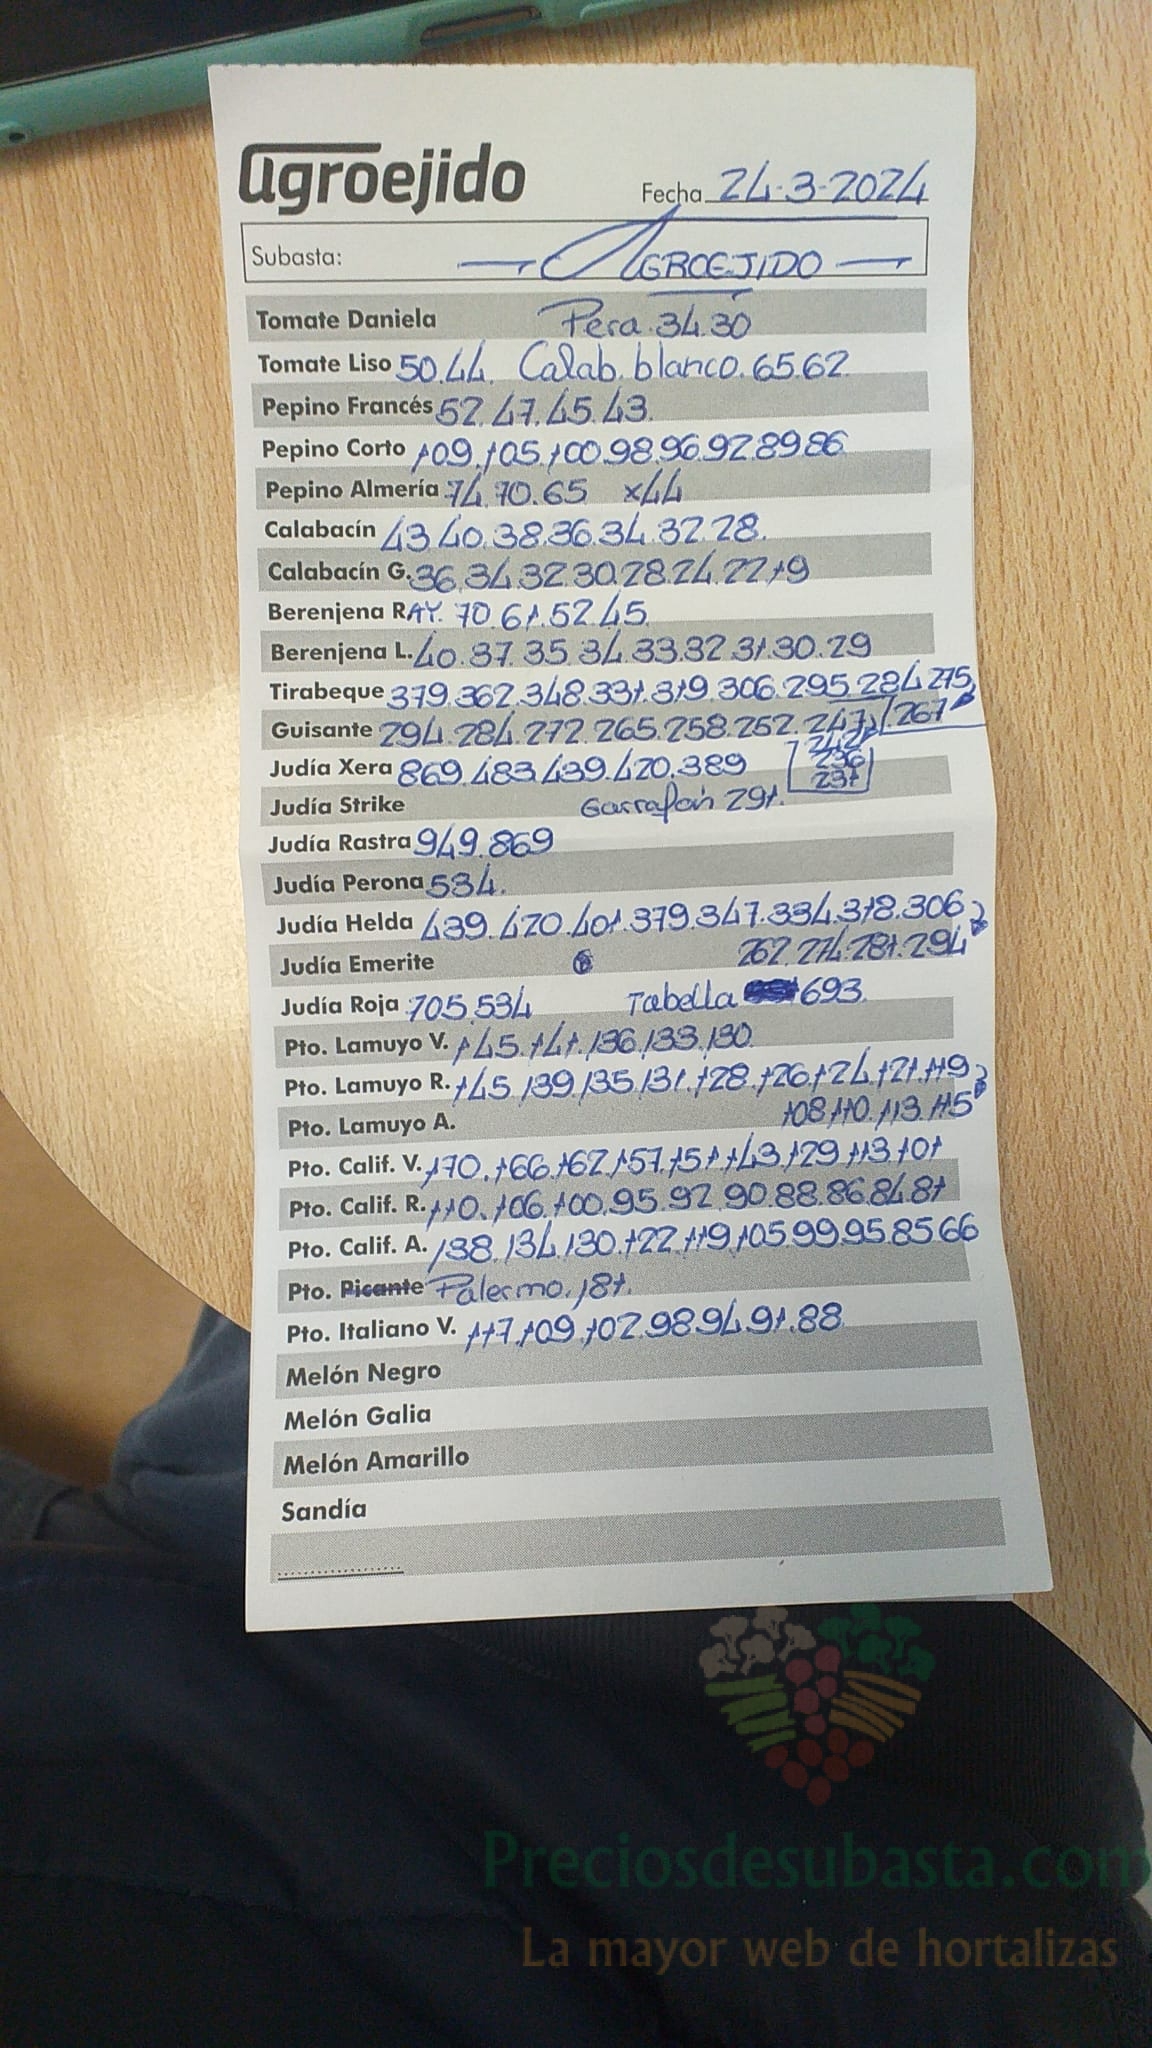 agroejido
Fecha 24-3-2024
Subasta: AGROEJIDO
Tomate Daniela Pera. 34.30
Tomate Liso 50.44. Calab. blanco. 65.62
Pepino Francés 52.47.45.43.
Pepino Corto 109.105.100.98.96.92.89.86
Pepino Almería 74.70.65 x44
Calabacín 43.40.38.36.34.32.28.
Calabacín G. 36.34.32.30.28.24.22.19
Berenjena RAY. 70.61.52.45.
Berenjena L. 40.37.35.34.33.32.31.30.29
Tirabeque 379.362.348.331.319.306.295.284.275
267
Guisante 294.284.272.265.258.252.247
242
236
231
Judía Xera 869.483.439.420.389
Judía Strike Garrafón 291.
Judía Rastra 949.869
Judía Perona 534.
Judía Helda 439.420.401.379.347.334.318.306
262.274.281.294
Judía Emerite
Judía Roja 705.534 Tabella 693.
Pto. Lamuyo V. 145.141.136.133.130
Pto. Lamuyo R. 145.139.135.131.128.126.124.121.119
108.110.113.115
Pto. Lamuyo A.
Pto. Calif. V. 170.166.162.157.151.143.129.113.101
Pto. Calif. R. 110.106.100.95.92.90.88.86.84.81
Pto. Calif. A. 138.134.130.122.119.105.99.95.85.66
Pto. Picante Palermo. 181.
Pto. Italiano V. 117.109.102.98.94.91.88
Melón Negro
Melón Galia
Melón Amarillo
Sandía
Preciosdesubasta.com
La mayor web de hortalizas